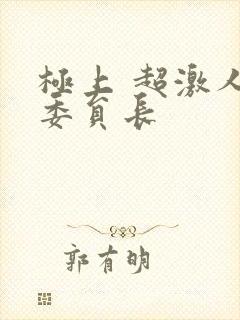 極上 超激人
委員長
郭有明